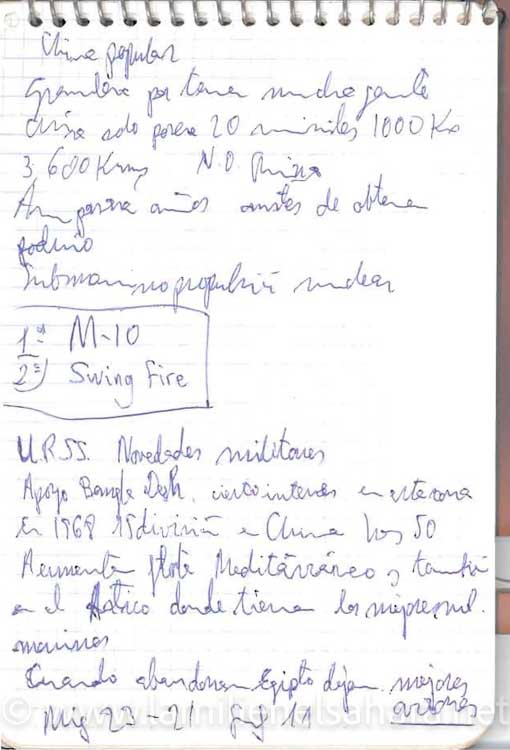 China popular
Grandeza por tener mucha gente
China solo posee 20 misiles 1000 Km
3.600 Kms N.O. China
Aun pasara años antes de obtener
Submarino propulsión nuclear
1º M-10
2º) Swing Fire
U.R.S.S. Novedades militares
Apoyo Bangla Desh, cierto interes en esta zona
En 1968 15 división en China hoy 50
Aumenta flota Mediterráneo y también
en el Artico donde tiene los mejores
marinos
Cuando abandonan Egipto dejan mejores
Mig 23 - 21 11 aviones
© www.lamilienelsahara.net